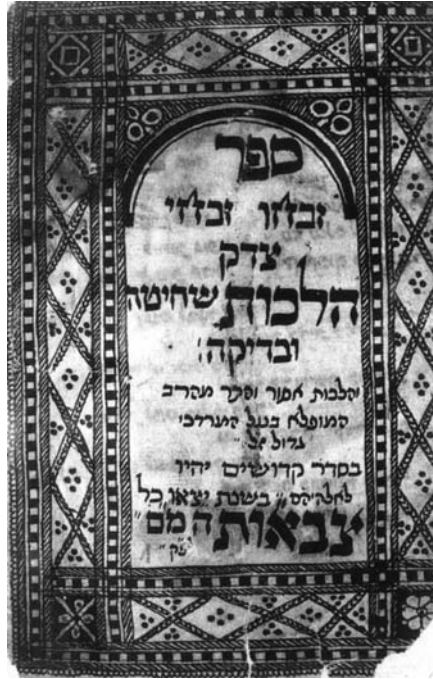 ספר
זבחו זבחי
צדק
הלכות שחיטה
ובדיקה׃
והלכות אסור והתר מהרב
המופלא בעל המרדכי
גדול
בסדר קדושים יהיו
לאלהיהם״ בשנת יצאו כל
צבאות